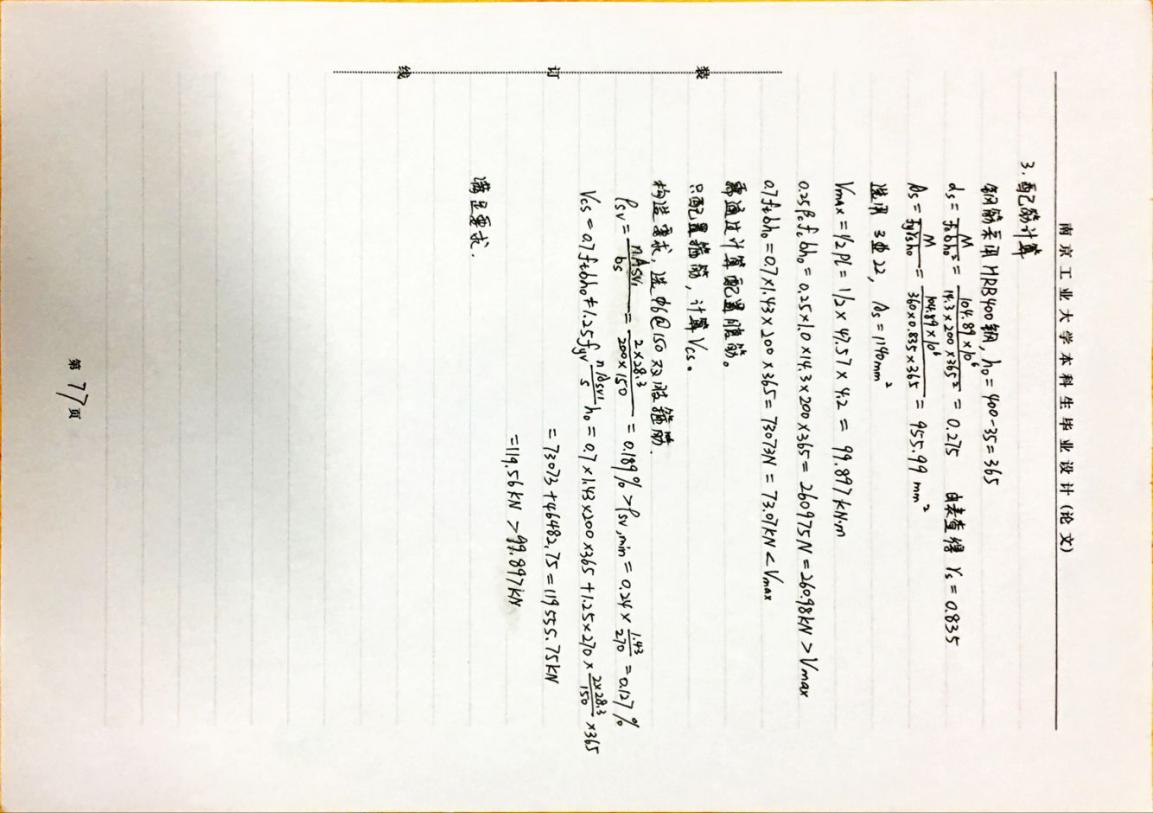 南京工业大学本科生毕业设计(论文)
3.配筋计算
钢筋采用HRB400钢, h₀=400-35=365
αs = M/fcbh₀² = 104.89×10⁶/14.3×200×365² = 0.275 由表查得 γs = 0.835
As = M/fyγsh₀ = 104.89×10⁶/360×0.835×365 = 955.99 mm²
选用 3Φ22, As = 1140mm²
Vmax = 1/2 Pl = 1/2 × 47.57 × 4.2 = 99.897 kN·m
0.25βcfcbh₀ = 0.25×1.0×14.3×200×365 = 260975N = 260.98kN > Vmax
0.7ftbh₀ = 0.7×1.43×200×365 = 73073N = 73.07kN < Vmax
需通过计算配置腹筋。
只配置箍筋, 计算Vcs。
构造要求, 选φ6@150双肢箍筋.
ρsv = nAsv1/bs = 2×28.3/200×150 = 0.189% > ρsv,min = 0.24× 1.43/270 = 0.127%
Vcs = 0.7ftbh₀+1.25fyv nAsv1/s h₀ = 0.7×1.43×200×365 + 1.25×270× 2×28.3/150 ×365
= 73073 + 46482.75 = 119555.75kN
= 119.56kN > 99.897kN
满足要求.
装
订
线
第77页